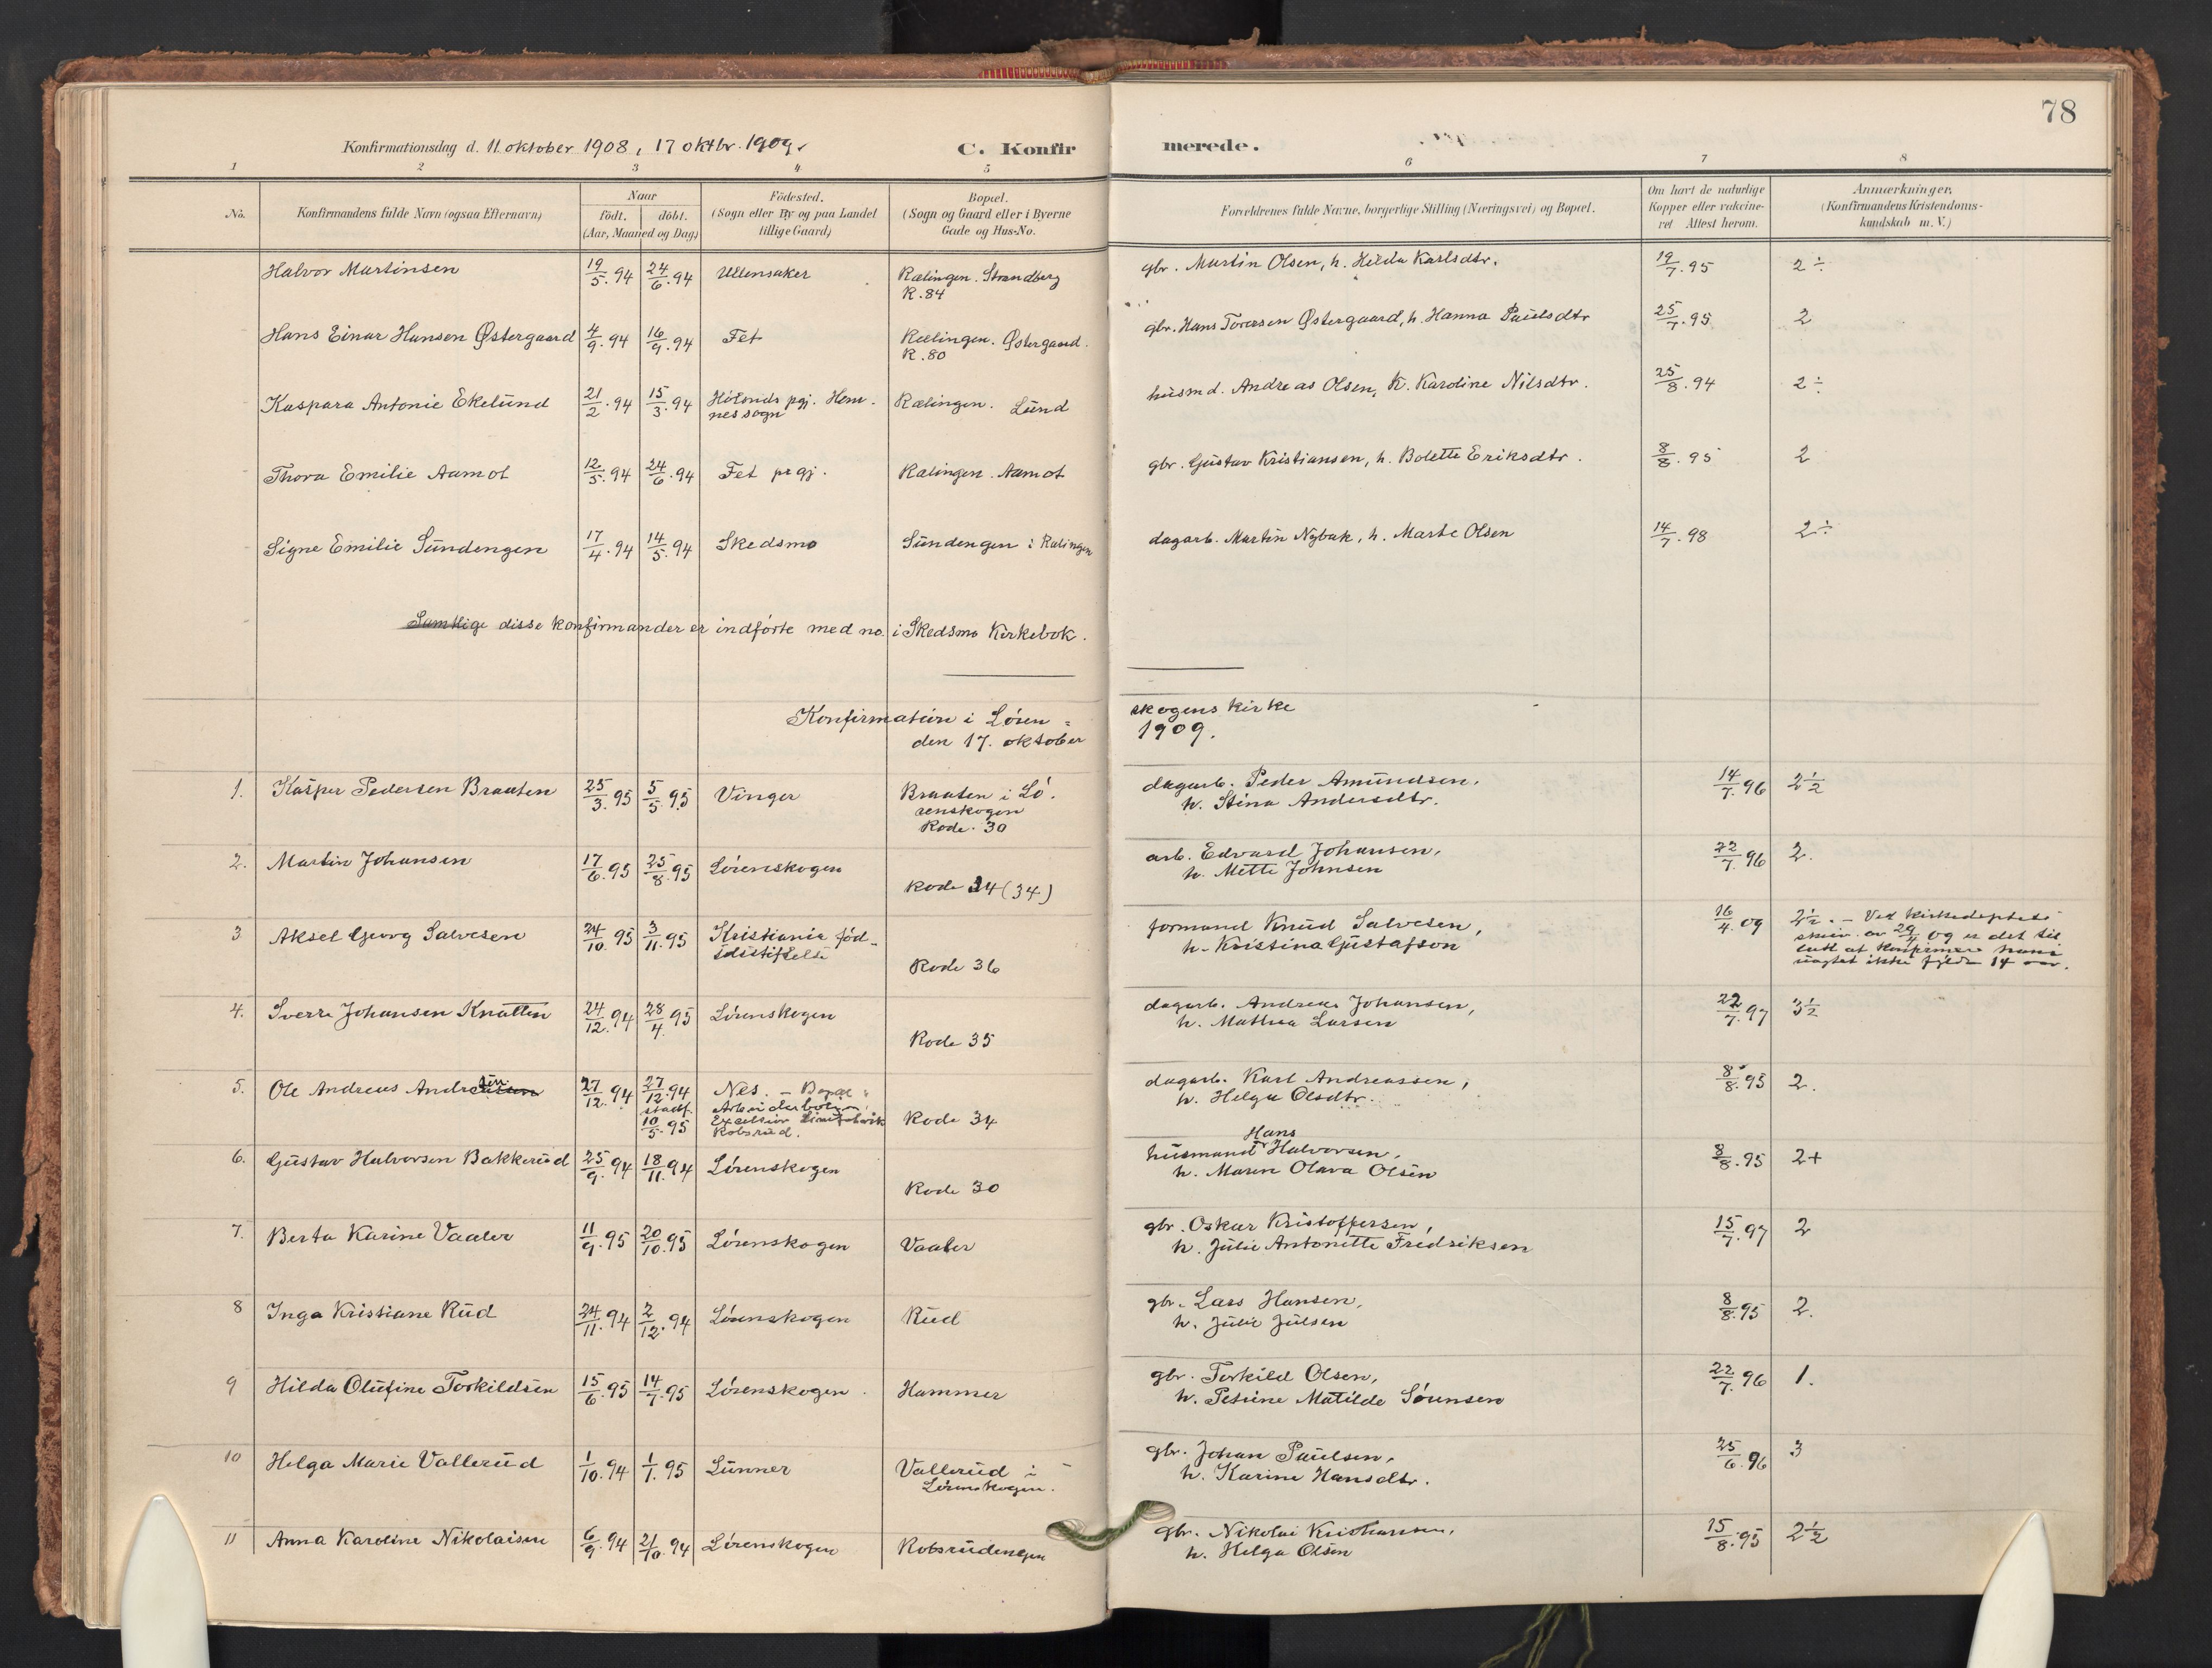 78
Konfirmationsdag d. 11 oktober 1908, 17 oktbr. 1909.
C. Konfirmerede.
1 2 3 4 5 6 7 8
No.
Konfirmandens fulde Navn (ogsaa Efternavn)
Naar
født. døbt.
(Aar, Maaned og Dag)
Fødested.
(Sogn eller By og paa Landet
tillige Gaard)
Bopæl.
(Sogn og Gaard eller i Byerne
Gade og Hus-No.
Forældrenes fulde Navne, borgerlige Stilling (Næringsvei) og Bopæl.
Om havt de naturlige
Kopper eller vakcine-
ret Attest herom.
Anmærkninger,
(Konfirmandens Kristendoms-
kundskab m. V.)
Halvor Martinsen 19/5.94 24/6.94 Ullensaker Rælingen. Strandberg gbr. Martin Olsen, h. Hilda Karlsdtr. 19/7.95 2÷
R.84
Hans Einar Hansen Østergaard 4/9.94 16/9.94 Fet Rælingen. Østergaard. gbr. Hans Toresen Østergaard, h. Hanna Paulsdtr 25/7.95 2
R.80
Kaspara Antonie Ekelund 21/2.94 15/3.94 Hølands pgj. Hem- Rælingen. Lund husmd. Andreas Olsen, K. Karoline Nilsdtr. 25/8.94 2÷
nes sogn
Thora Emilie Aamot 12/5.94 24/6.94 Fet prgj. Rælingen. Aamot gbr. Gustav Kristiansen, h. Bolette Eriksdtr. 8/8.95 2
Signe Emilie Sundengen 17/4.94 14/5.94 Skedsmo Sundengen i Rælingen dagarb. Martin Nybak, h. Marte Olsen 14/7.98 2÷
Samtlige disse konfirmander er indførte med no. i Skedsmo Kirkebok.
Konfirmation i Løren=skogens kirke
den 17. oktober 1909.
1. Kasper Pedersen Braaten 25/3.95 5/5.95 Vinger Braaten i Lø- dagarb. Peder Amundsen, 14/7.96 2½
renskogen h. Stina Andersdtr.
Rode. 30
2. Martin Johansen 17/6.95 25/8.95 Lørenskogen arb. Edvard Johansen, 22/7.96 2.
Rode 34 (34) h. Mette Johnsen
3 Aksel Georg Salvesen 24/10.95 3/11.95 Kristiania fød- formand Knud Salvesen, 16/4.09 2½. – Ved kirkedeptets
selsstiftelse h. Kristina Gustafson skriv. av 29/4 09 er det til
Rode 36 latt at konfirmere ham
uagtet ikke fyldt 14 aar.
4. Sverre Johansen Knatten 24/12.94 28/4.95 Lørenskogen dagarb. Andreas Johansen, 22/7.97 3½
Rode 35 h. Mathea Larsen
5. Ole Andreas Andresen 27/12.94 27/12.94 Nes. – Bopæl: dagarb. Karl Andreassen, 8/8.95 2.
stadf. Arbeiderbolig h. Helga Olsdtr.
10/5.95 Excelsior Limfabrik Rode 34
Robsrud.
6. Gustav Halvorsen Bakkerud 25/9.94 18/11.94 Lørenskogen husmand Hans Halvorsen, 8/8.95 2+
Rode 30 h. Maren Olava Olsen
7. Berta Karine Vaaler 11/9.95 20/10.95 Lørenskogen Vaaler gbr. Oskar Kristoffersen, 15/7.97 2
h. Julie Antonette Fredriksen
8 Inga Kristiane Rud 24/11.94 2/12.94 Lørenskogen Rud gbr. Lars Hansen, 8/8.95 2.
h. Julie Julsen
9 Hilda Olufine Torkildsen 15/6.95 14/7.95 Lørenskogen. Hammer gbr. Torkild Olsen, 22/7.96 1.
h. Petrine Matilde Sørensen
10 Helga Marie Vallerud 1/10.94 1/1.95 Lunner Vallerud i gbr. Johan Paulsen, 25/6.96 3
Lørenskogen. h. Karine Hansdtr.
11 Anna Karoline Nikolaisen 6/9.94 21/10.94 Lørenskogen Robsrudengen gbr. Nikolai Kristiansen, 15/8.95 2½
h. Helga Olsen